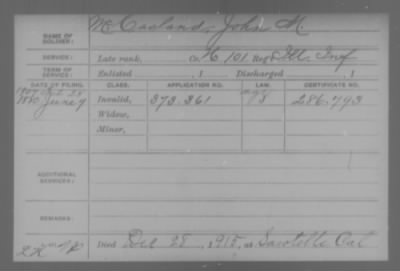 McCasland, John M.
NAME OF SOLDIER:
SERVICE: Late rank, Co. K, 101 Reg't Ill. Inf
TERM OF SERVICE: Enlisted , 1 Discharged , 1
DATE OF FILING. CLASS. APPLICATION NO. LAW. CERTIFICATE NO.
1880 June 9 Invalid, 373.361 286.793
Widow,
Minor,
ADDITIONAL SERVICES:
REMARKS:
Died Dec 28, 1915, at Sawtelle Cal